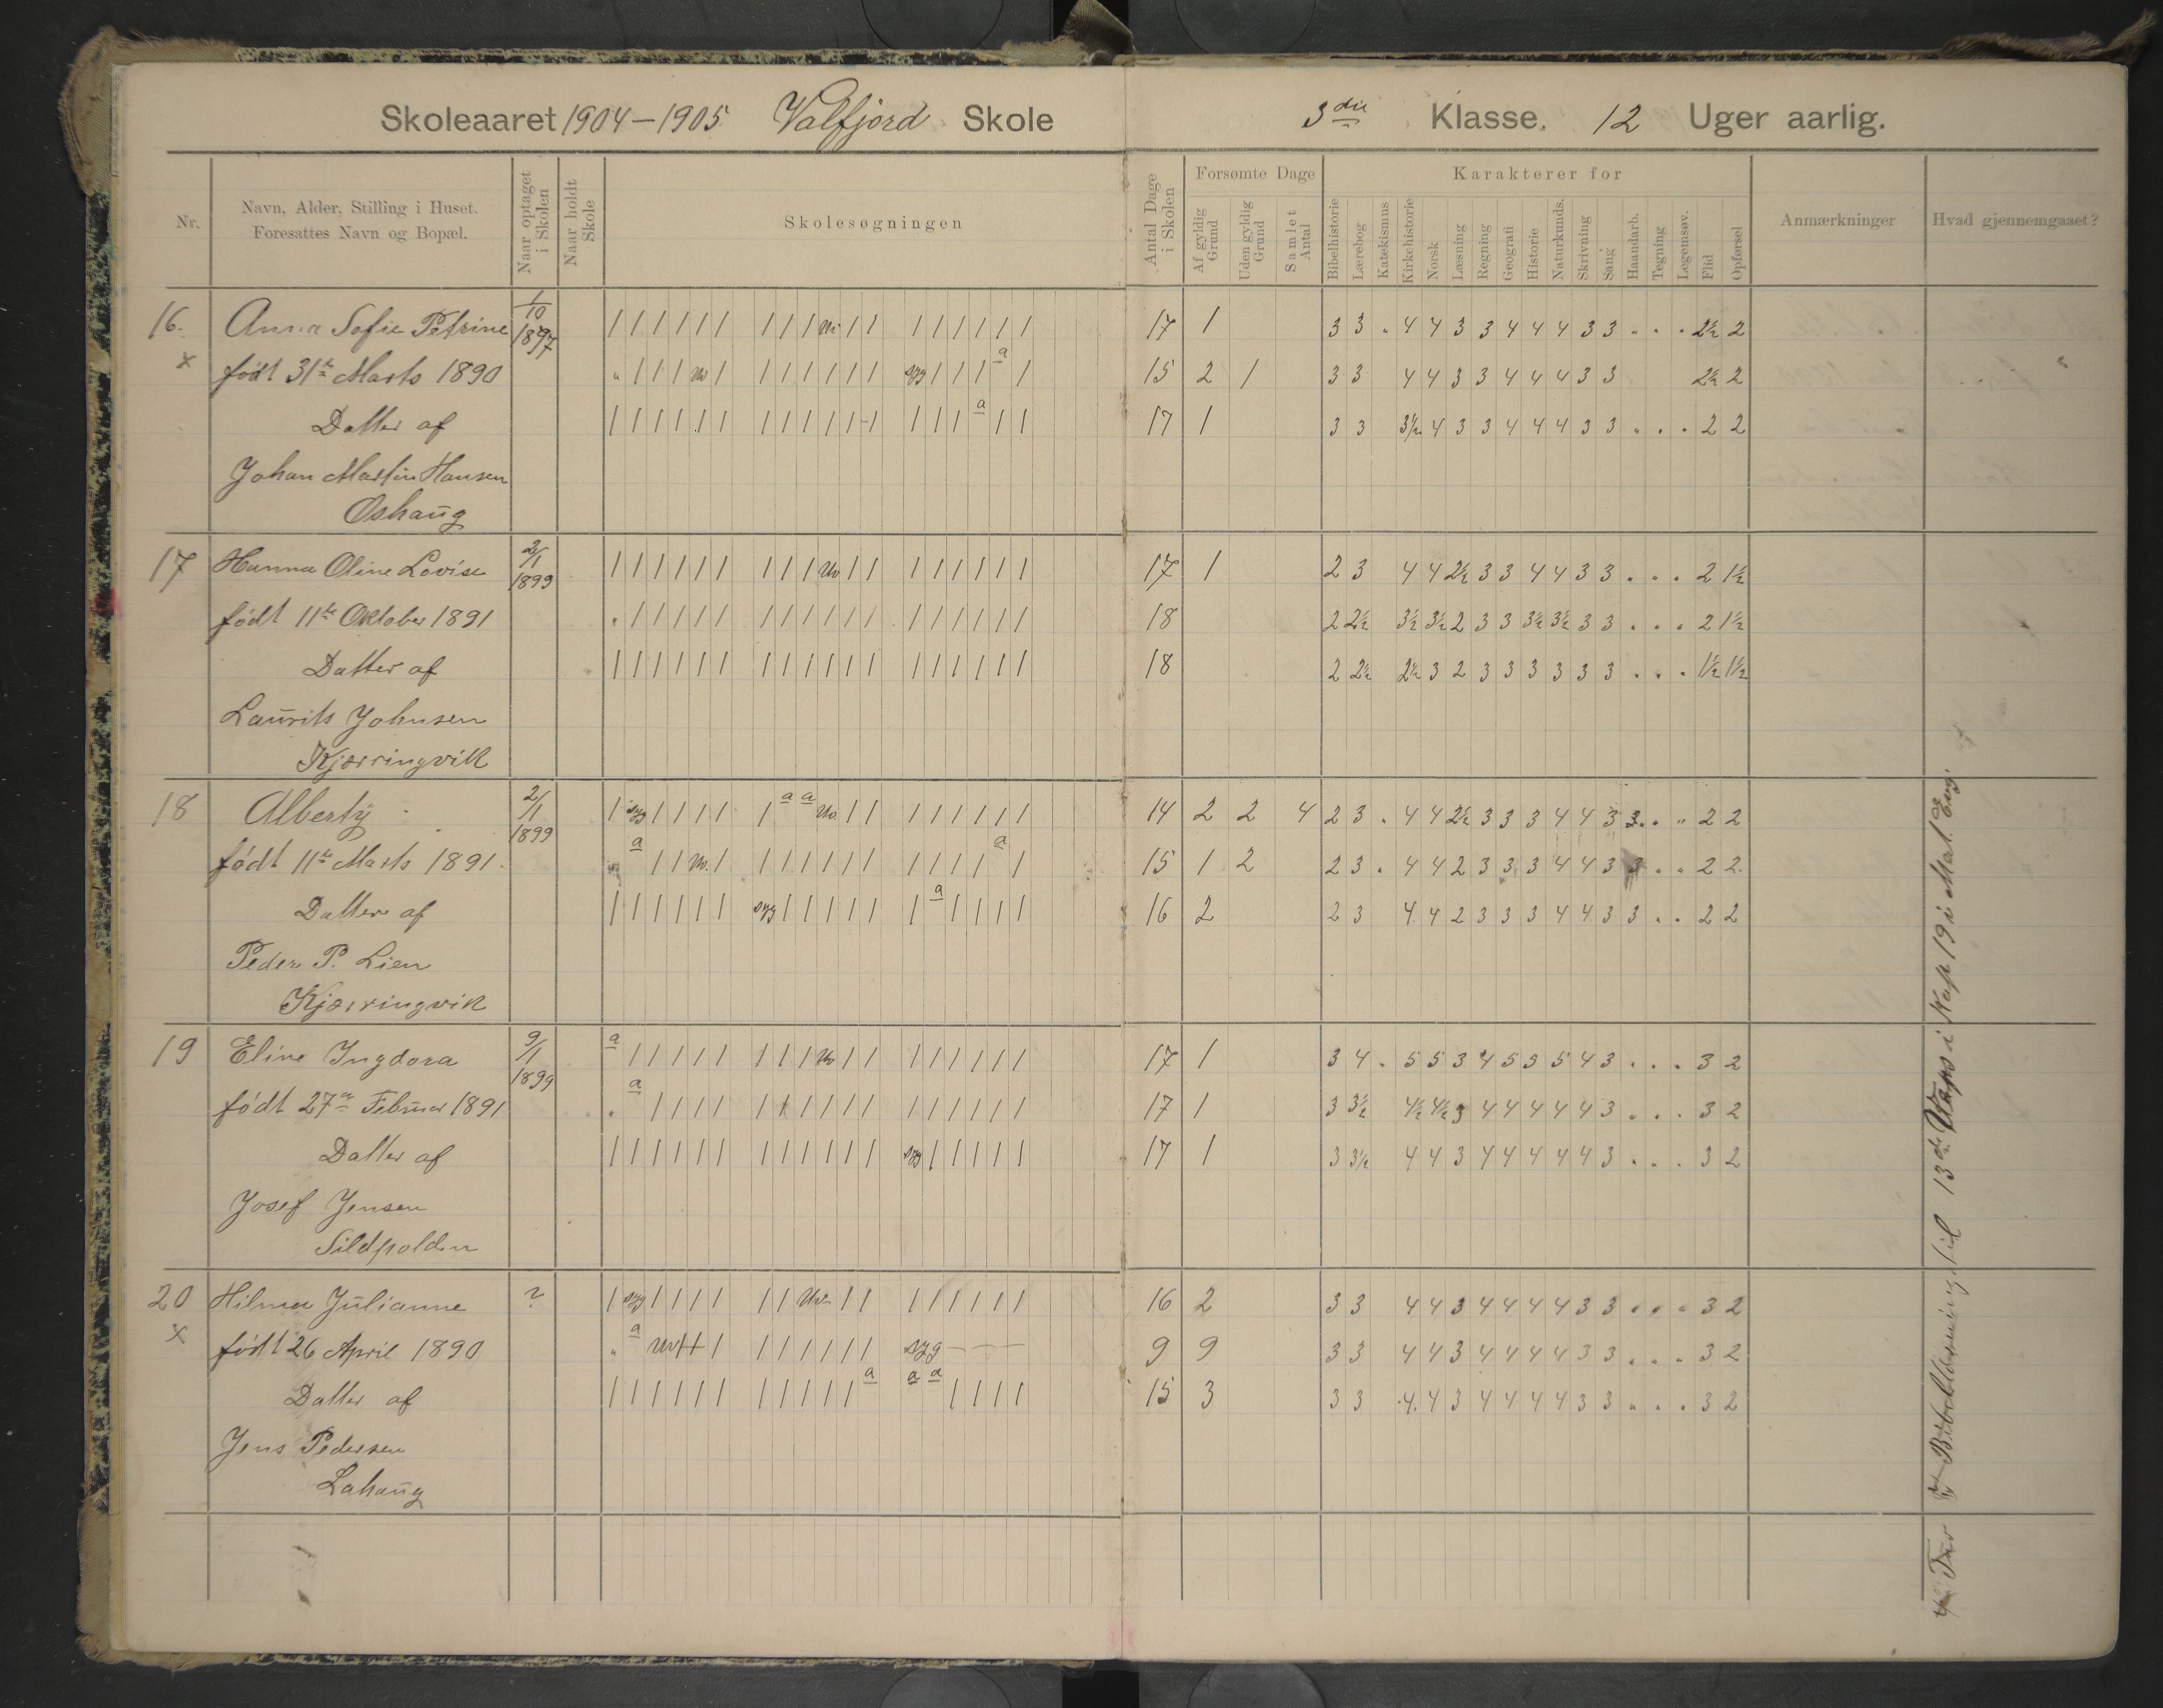 Skoleaaret 1904-1905 Valfjord Skole 3die Klasse. 12 Uger aarlig.
Nr. Navn, Alder, Stilling i Huset. Foresattes Navn og Bopæl. Naar optaget i Skolen Naar holdt Skole Skolesøgningen Antal Dage i Skolen Forsømte Dage Af gyldig Grund Uden gyldig Grund Samlet Antal Karakterer for Bibelhistorie Lærebog Katekismus Kirkehistorie Norsk Læsning Regning Geografi Historie Naturkunds. Skrivning Sang Haandarb. Tegning Legemsøv. Flid Opførsel Anmærkninger Hvad gjennemgaaet?
16. Anna Sofie Petrine 1/10 1897 | | | | | | | | | | | | | | | | | 17 1 3 3 . 4 4 3 3 4 4 4 3 3 . . . 2½ 2
x født 31te Marts 1890 " | | | | | | | | | | syg | | | a | 15 2 1 3 3 4 4 3 3 4 4 4 3 3 2½ 2
Datter af | | | | | | | | | | | | | | | a | | 17 1 3 3 3½ 4 3 3 4 4 4 3 3 . . . 2 2
Johan Martin Hansen
Oshaug
17 Hanna Oline Lovise 2/1 1899 | | | | | | | | | | | | | | | | | 17 1 2 3 4 4 2½ 3 3 4 4 3 3 . . . 2 1½
født 11te Oktober 1891 . | | | | | | | | | | | | | | | | | 18 2 2½ 3½ 3½ 2 3 3 3½ 3½ 3 3 . . . 2 1½
Datter af | | | | | | | | | | | | | | | | | | 18 2 2½ 2½ 3 2 3 3 3 3 3 3 . . . 1½ 1½
Laurits Johnsen
Kjærringvik
18 Alberty 2/1 1899 | syg | | | | | a a | | | | | | | | 14 2 2 4 2 3 . 4 4 2½ 3 3 3 4 4 3 3 . . 2 2
født 11te Marts 1891. a | | | | | | | | | | | | | a | 15 1 2 2 3 . 4 4 2 3 3 3 4 4 3 3 . . 2 2
Datter af | | | | | | syg | | | | | | a | | | | 16 2 2 3 4 4 2 3 3 3 4 4 3 3 . . 2 2
Peder P. Lien
Kjærringvik
19 Eline Ingdora 9/1 1899 a | | | | | | | | | | | | | | | | 17 1 3 4 . 5 5 3 4 5 5 5 4 3 . . . 3 2
født 27de Februar 1891 . a | | | | | | | | | | | | | | | | 17 1 3 3½ 4½ 4½ 3 4 4 4 4 4 3 . . . 3 2
Datter af | | | | | | | | | | | | syg | | | | | 17 1 3 3½ 4 4 3 4 4 4 4 4 3 . . . 3 2
Josef Jensen
Sildpolden
20 Hilma Julianne ? | syg | | | | | | | | | | | | | | 16 2 3 3 4 4 3 4 4 4 4 3 3 . . . 3 2
x født 26 April 1890 " a | | | | | | | syg - - - 9 9 3 3 4 4 3 4 4 4 4 3 3 . . . 3 2
Datter af | | | | | | | | | | | a a a | | | | 15 3 3 3 4 4 3 4 4 4 4 3 3 . . . 3 2
Jens Pedersen
Lahaug
Bibellæsning. til 13de i Kap 19 i Mat. Evg.